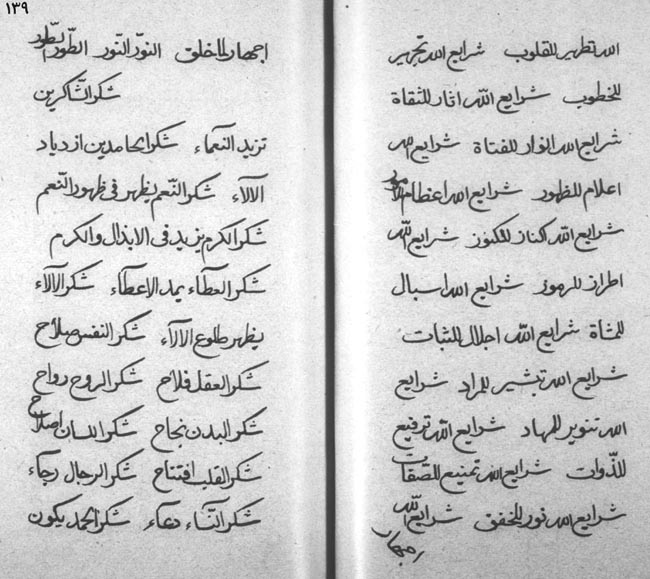 الله تطهير للقلوب شرايع الله تجهير
للخطوب شرايع الله اثار للثقاة
شرايع الله انوار للفتاة شرايع الله
اعلام للظهور شرايع الله اعظام
شرايع الله اكناز للكنوز شرايع الله
اطراز للرموز شرايع الله اسبال
للمشاة شرايع الله اجلال للثبات
شرايع الله تبشير للمراد شرايع
الله تنوير للمهاد شرايع الله ترفيع
للذوات شرايع الله تمنيع للصفات
شرايع الله نور للخفق شرايع الله
١٣٩
اجهار للخلق النور النور الطور الطور
شكر الشاكرين
تزيد النعماء شكر الحامدين ازدياد
الالاء شكر النعم يظهر فى ظهور النعم
شكر الكرم يزيد فى الابذال والكرم
شكر العطاء يمد الاعطاء شكر الالاء
يظهر طلوع الالاء شكر النفس صلاح
شكر العقل فلاح شكر الروح رواح
شكر البدن نجاح شكر اللسان اصلاح
شكر القلب افتتاح شكر الرجال رجاء
شكر الثناء دعاء شكر الحمد يكون